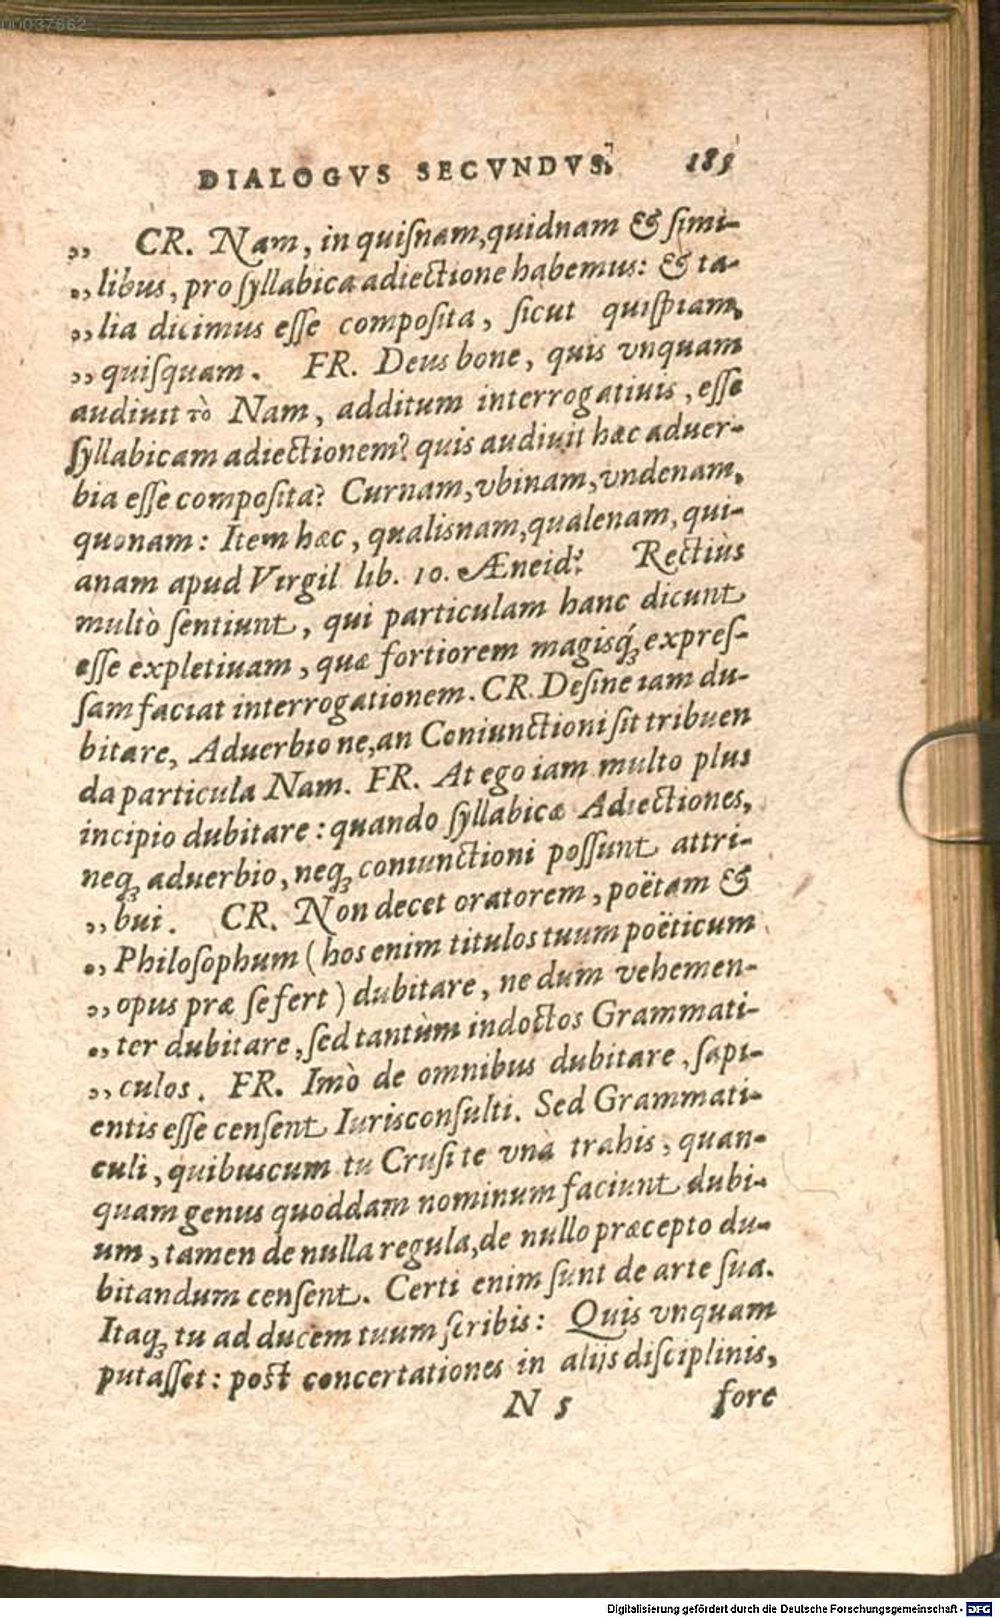 00037662
DIALOGVS SECVNDVS. 185
„ CR. Nam, in quiſnam, quidnam & ſimi-
„ libus, pro ſyllabica adiectione habemus: & ta-
„ lia dicimus eſſe compoſita, ſicut quiſpiam,
„ quiſquam. FR. Deus bone, quis vnquam
audiuit τὸ Nam, additum interrogatiuis, eſſe
ſyllabicam adiectionem? quis audiuit hæc aduer-
bia eſſe compoſita? Curnam, vbinam, vndenam,
quonam: Item hæc, qualisnam, qualenam, qui-
anam apud Virgil. lib. 10. Æneid? Rectiùs
multò ſentiunt, qui particulam hanc dicunt
eſſe expletiuam, quæ fortiorem magisq́ꝫ expreſ-
ſam faciat interrogationem. CR. Deſine iam du-
bitare, Aduerbio ne, an Coniunctioni ſit tribuen
da particula Nam. FR. At ego iam multo plus
incipio dubitare: quando ſyllabicæ Adiectiones,
neqꝫ aduerbio, neqꝫ coniunctioni poſſunt attri-
„ bui. CR. Non decet oratorem, poëtam &
„ Philoſophum (hos enim titulos tuum poëticum
„ opus præ ſe fert) dubitare, ne dum vehemen-
„ ter dubitare, ſed tantùm indoctos Grammati-
„ culos. FR. Imò de omnibus dubitare, ſapi-
entis eſſe cenſent Iurisconſulti. Sed Grammati-
culi, quibuscum tu Cruſi te vnà trahis, quan-
quam genus quoddam nominum faciunt dubi-
um, tamen de nulla regula, de nullo præcepto du-
bitandum cenſent. Certi enim ſunt de arte ſua.
Itaqꝫ tu ad ducem tuum ſcribis: Quis vnquam
putaſſet: poſt concertationes in alijs diſciplinis,
N 5 fore
Digitalisierung gefördert durch die Deutsche Forschungsgemeinschaft - DFG